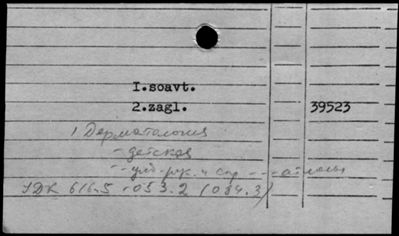 I.soavt.
2.zagl. 39523
1 Дерматология
- детская
УДК 616.5-053.2 (084.3)